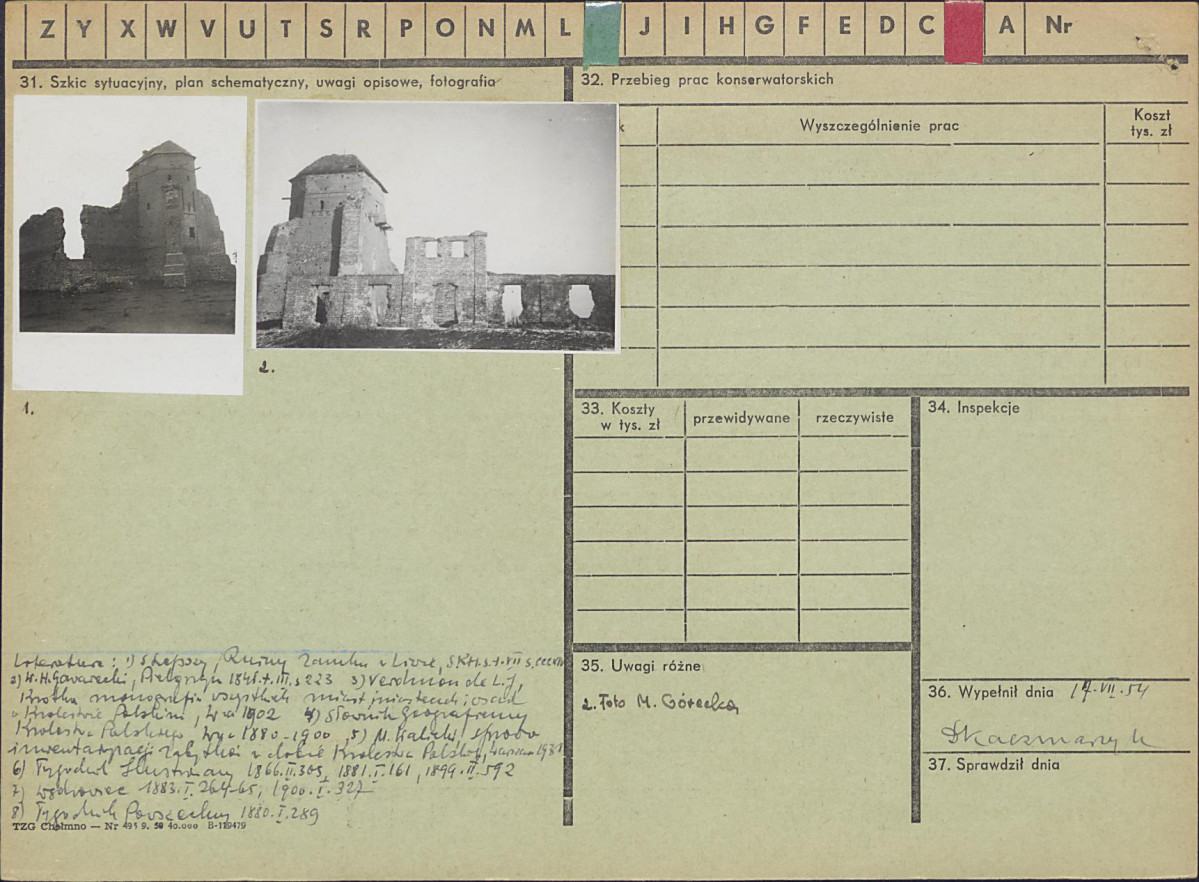 Z Y X W V U T S R P O N M L J I H G F E D C A Nr
31. Szkic sytuacyjny, plan schematyczny, uwagi opisowe, fotografia
32. Przebieg prac konserwatorskich
k
Wyszczególnienie prac
Koszt
tys. zł
1.
2.
33. Koszty
w tys. zł
przewidywane
rzeczywiste
34. Inspekcje
Literatura: 1) Ruiny Zamku w Liwie, S.K.H.S. t. VII s.
2) W. H. Gawarecki, Pielgrzym 1845 t. III s 223 3) Verdmon de L. J,
Krótka monografia wszystkich miast miasteczek i osad
w Królestwie Polskim, W-a 1902 4) Słownik Geograficzny
Królestwa Polskiego W-a 1880-1900, 5) M. Walicki, Sprawa
inwentaryzacji zabytków w dobie Królestwa Polskiego, Warszawa 1931
6) Tygodnik Ilustrowany 1866.II.305, 1881.I.161, 1899.II.592
7) Wędrowiec 1883.I.264-65, 1900.I.327
8) Tygodnik Powszechny 1880.I.289
TZG Chełmno — Nr 495 9. 50 40.000 B-119479
35. Uwagi różne
2. Foto M. Górecka
36. Wypełnił dnia 17.VII.54
DKaczmarzyk
37. Sprawdził dnia